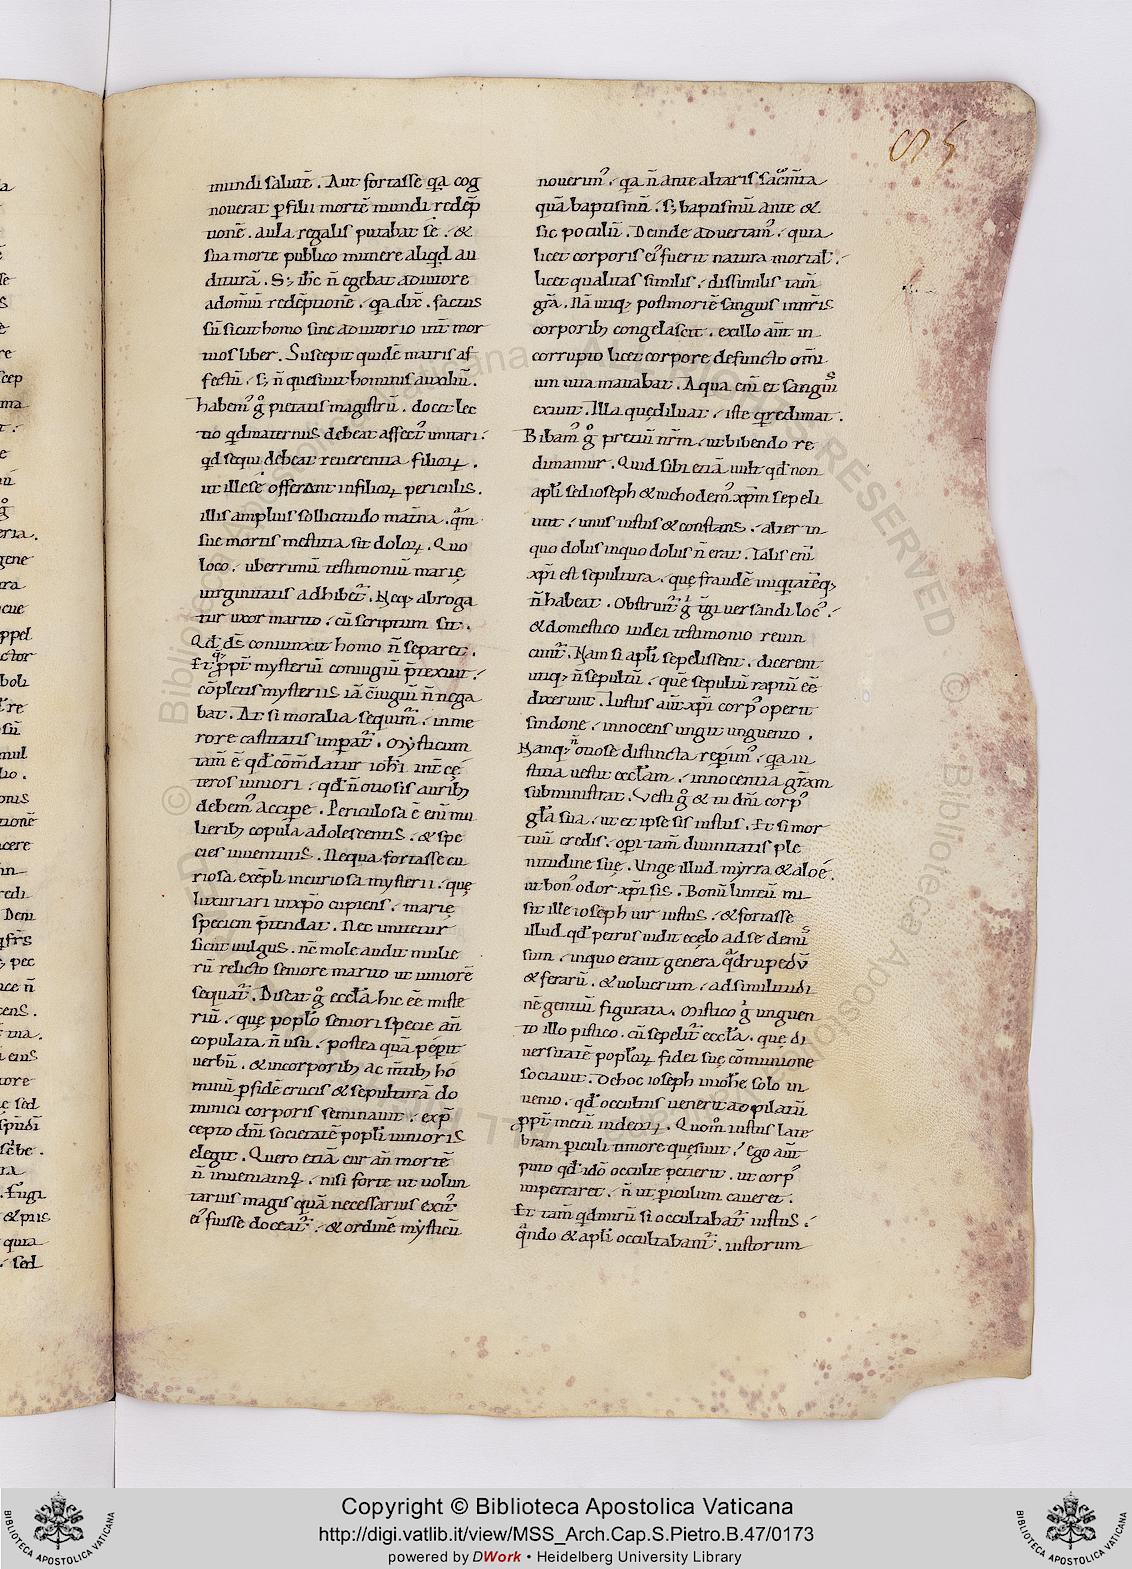 mundi salutē. Aut fortasse qa cog
nouerat ꝑ filii mortē mundi redēp
tionē. aula regalis putabat se. &
sua morte publico munere aliqd au
diturā. S; ihc n̄ egebat adiutore
adomniū redēptionē. qa dix̄. factus
sū sicut homo sine adiutorio int̄ mor
tuos liber. Suscepit quidē matris af
fectū. s; n̄ quesiuit hominis auxiliū.
habem᾽ g̊ pietatis magistrū. docet lec
tio qd maternus debeat affect᾽ imitari.
qd sequi debeat reuerentia filioꝝ.
ut ille se offerant in filioꝝ periculis.
illis amplius sollicitudo mat̄na. q̄m
sue mortis mestitia sit doloꝝ. Quo
loco. uberrimū testimoniū marię
uirginitatis adhibet᷑. Neq; abroga
tur uxor marito. cū scriptum sit.
Qd ds̄ coniunxit homo n̄ separet.
Et ꝓpt̄ mysteriū coniugiū p̄texuit.
cōpletis mysteriis iā c̄iugiū n̄ nega
bat. At si moralia sequim᾽. in me
rore castitatis imꝑat᷑. Mysticum
tam̄ ē qd cōm̄datur iohi int̄ cę
teros iuniori. qd n̄ otiosis aurib;
debem᾽ accipe. Periculosa ē eni mu
lierib; copula adolescentis. & spe
cies iuuentutis. Nequa fortasse cu
riosa exēpli incuriosa mysterii. quę
luxuriari in xp̄o cupiens. marię
speciem p̄tendat. Nec imitetur
sicut uulgus. nē mole audit mulie
rū relicto seniore marito ut iuniorē
sequat᷑. Discat g̊ eccl̄a hic eē miste
riū. quę poplo seniori specie an̄
copulata n̄ usu. postea quā peperit
uerbū. & in corporib; ac m̄tib; ho
minū ꝑ fidē crucis & sepulturā do
minici corporis seminauit. ex p̄
cepto dn̄i societatē popli iunioris
elegit. Quero etiā cur an̄ mortē
n̄ inueniam᾽. nisi forte ut uolun
tarius magis quā necessarius exit᾽
ei᾽ fuisse doceat᷑. & ordinē mysticū
nouerim᾽. qa n̄ ante altaris sac̄m̄ta
quā baptismū. s; baptismū ante &
sic poculū. Deinde aduertam᾽. quia
licet corporis ei᾽ fuerit natura mortal᾽.
licet qualitas similis. dissimilis tam̄
gr̄a. Nā utiq; post mortē sanguis in nr̄is
corporib; congelascit. ex illo aut̄ in
corrupto licet corpore defuncto omi
um uita manabat. Aqua eni et sanguis
exiuit. Illa quę diluat. iste q redimat.
Bibam᾽ g̊ pretiū nr̄m. ut bibendo re
dimamur. Quid sibi etiā uult qd non
apli sed ioseph & nichodem᾽ xp̄m sepeli
unt. unus iustus & constans. alter in
quo dolus in quo dolus n̄ erat. Talis eni
xp̄i est sepultura. quę fraudē iniquitatēq;
n̄ habeat. Obstruit᷑ g̊ t̄gi uersandi loc᾽.
& domestico iudei testimonio reuin
cunt᷑. Nam si apli sepelissent. dicerent
utiq; n̄ sepultū. quē sepultū raptū eē
dixerunt. Iustus aut̄ xp̄i corp᾽ operit
sindone. innocens ungit unguento.
Nanq; n̄ otiose distincta reperim᾽. qa iu
stitia uestit eccl̄am. innocentia gr̄am
subministrat. Vesti g̊ & tu dn̄i corp᾽
gl̄a sua. ut et ipse sis iustus. Et si mor
tuū credis. operi tam̄ diuinitatis ple
nitudine suę. Unge illud myrra & aloe.
ut bon᾽ odor xp̄i sis. Bonū linteū mi
sit ille ioseph uir iustus. & fortasse
illud qd petrus uidit e cęlo ad se demis
sum. in quo erant genera q̄drupedū
& ferarū. & uolucrum. ad similitudi
nē gentiū figurata. Mistico g̊ unguen
to illo pistico. cū sepelit᷑ eccl̄a. quę di
uersitatē poploꝝ fidei suę cōmunione
sociauit. De hoc ioseph in ioh̄e solo in
uenio. qd occultus uenerit ad pilatū
ꝓpt̄ metū iudeoꝝ. Quom̄ iustus late
bram ꝑiculi timore quesiuit? ego aut̄
puto qd idō occulte petierit. ut corp᾽
impetraret. n̄ ut ꝑiculum caueret.
Et tam̄ qd mirū si occultabat᷑ iustus.
q̄ndo & apli occultabant᷑. iustorum
Copyright © Biblioteca Apostolica Vaticana
http://digi.vatlib.it/view/MSS_Arch.Cap.S.Pietro.B.47/0173
powered by DWork • Heidelberg University Library